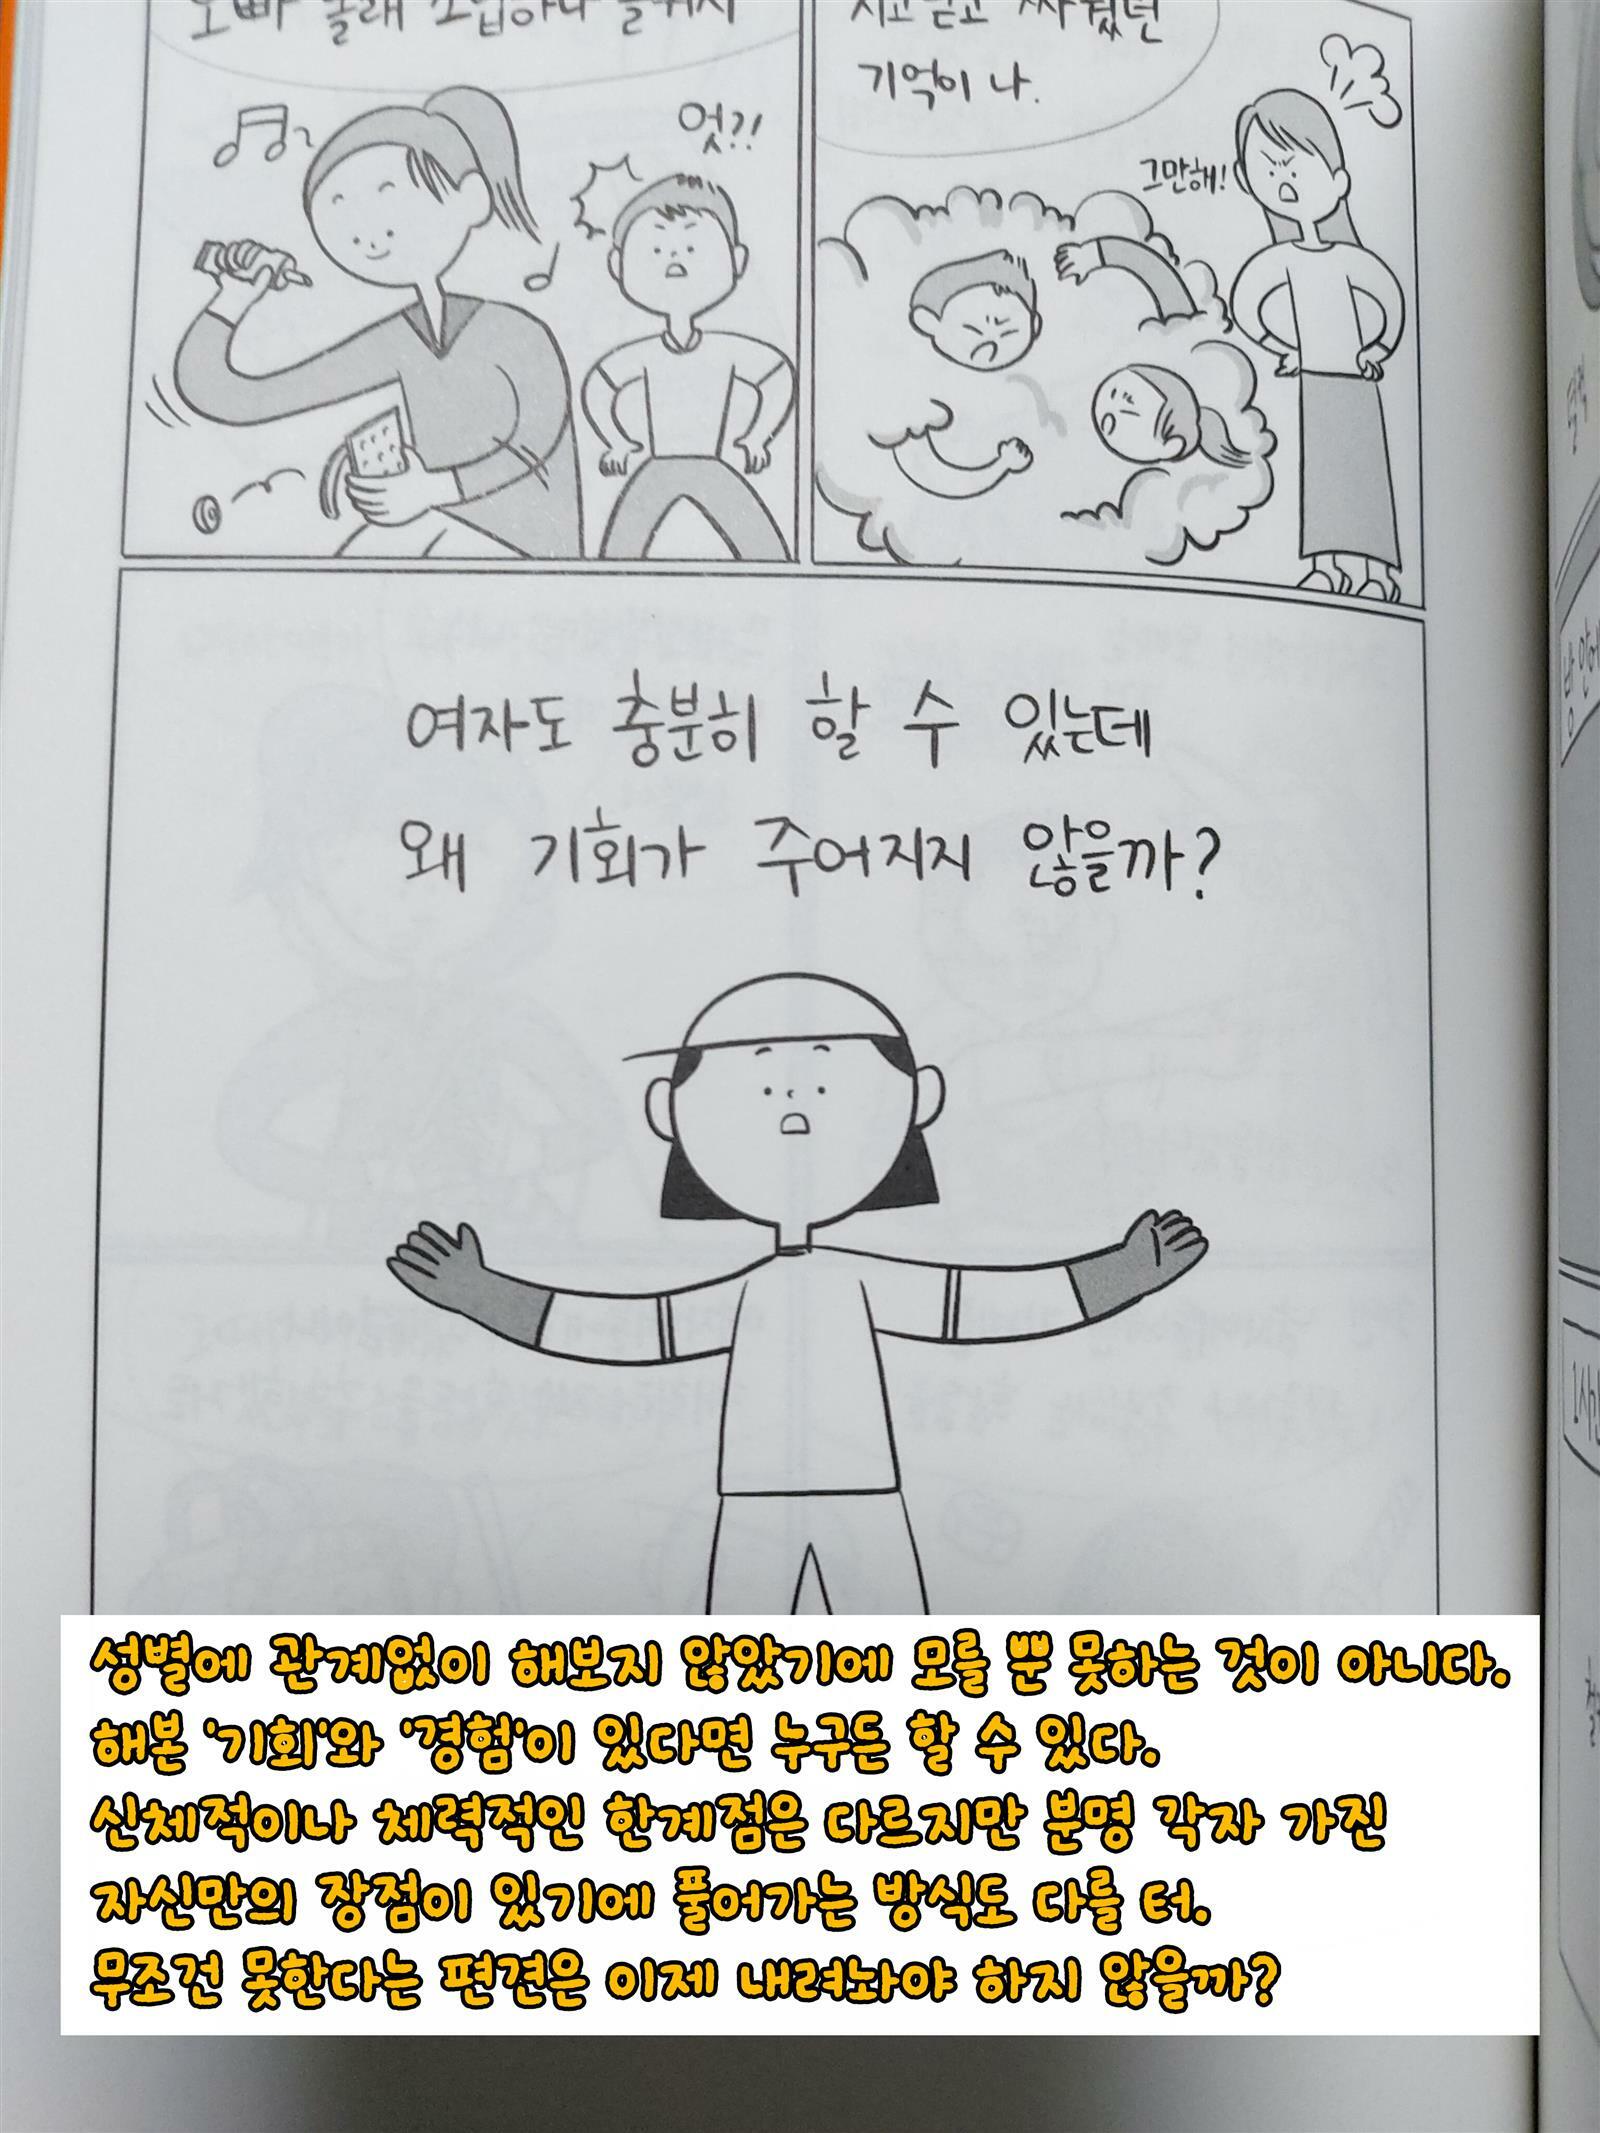 오빠 몰래
치고 받고 싸웠던
기억이 나.
엇?!
그만해!
여자도 충분히 할 수 있는데
왜 기회가 주어지지 않을까?
성별에 관계없이 해보지 않았기에 모를 뿐 못하는 것이 아니다.
해본 '기회'와 '경험'이 있다면 누구든 할 수 있다.
신체적이나 체력적인 한계점은 다르지만 분명 각자 가진
자신만의 장점이 있기에 풀어가는 방식도 다를 터.
무조건 못한다는 편견은 이제 내려놔야 하지 않을까?